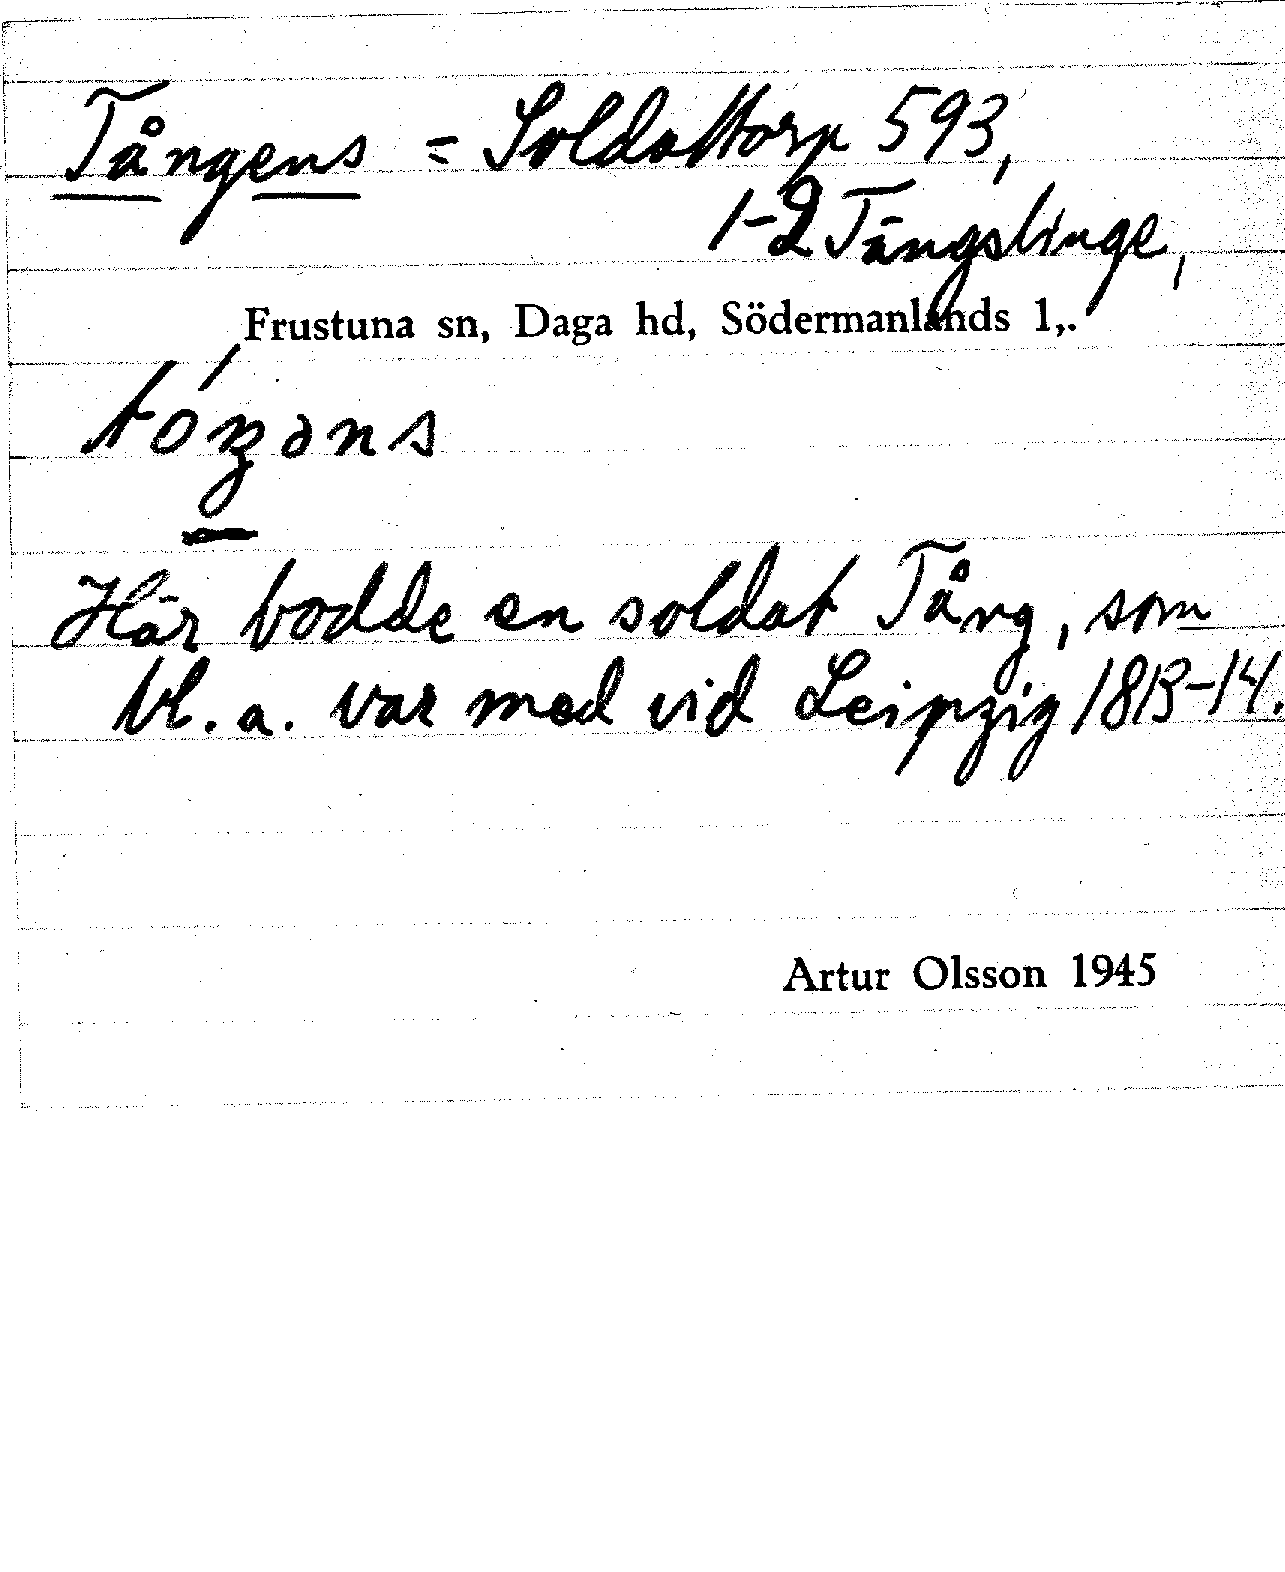 Tångens = Soldattorp 593,
1-2 Tängslinge,
Frustuna sn, Daga hd, Södermanlands l,.
tóŋəns
Här bodde en soldat Tång, som
bl. a. var med vid Leipzig 1813-14.
Artur Olsson 1945